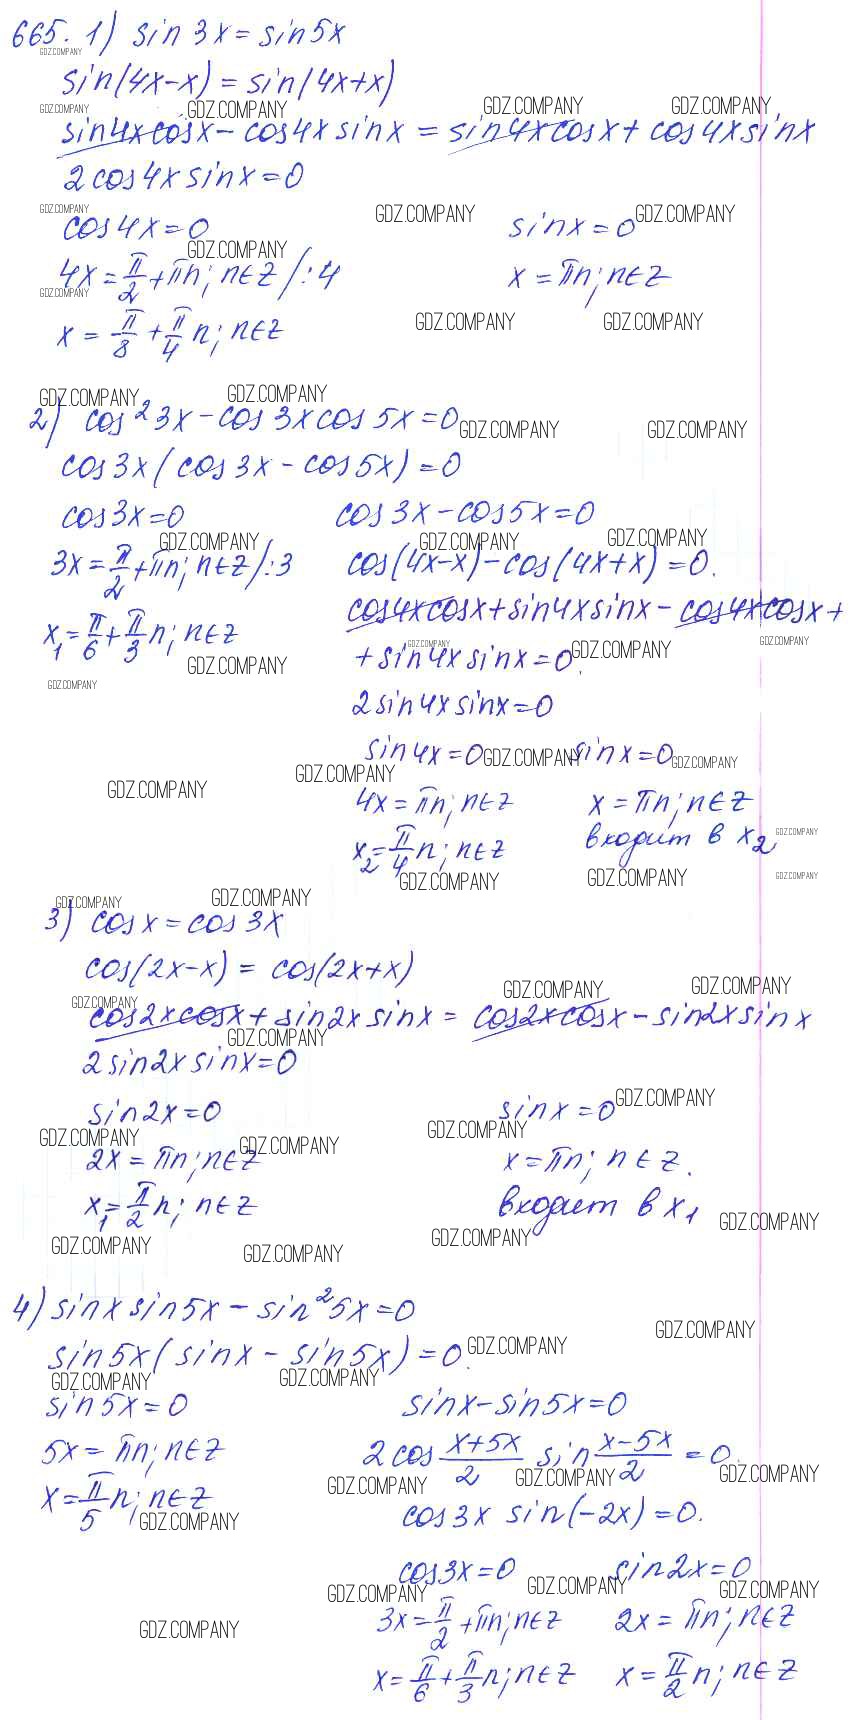 665. 1) sin 3x = sin 5x
GDZ.COMPANY
sin(4x-x) = sin(4x+x)
GDZ.COMPANY GDZ.COMPANY GDZ.COMPANY GDZ.COMPANY
sin4x cosx - cos4x sinx = sin4x cosx + cos4x sinx
2cos4x sinx = 0
GDZ.COMPANY GDZ.COMPANY GDZ.COMPANY
cos4x = 0 sinx = 0
GDZ.COMPANY
4x = π/2 + πn; n∈Z /:4 x = πn; n∈Z
GDZ.COMPANY GDZ.COMPANY GDZ.COMPANY
x = π/8 + π/4 n; n∈Z
GDZ.COMPANY GDZ.COMPANY
2) cos²3x - cos3x cos5x = 0
GDZ.COMPANY GDZ.COMPANY
cos3x(cos3x - cos5x) = 0
cos3x = 0 cos3x - cos5x = 0
GDZ.COMPANY GDZ.COMPANY GDZ.COMPANY
3x = π/2 + πn; n∈Z /:3 cos(4x-x) - cos(4x+x) = 0.
cos4x cosx + sin4x sinx - cos4x cosx +
x₁ = π/6 + π/3 n; n∈Z
GDZ.COMPANY GDZ.COMPANY GDZ.COMPANY GDZ.COMPANY
+ sin4x sinx = 0.
GDZ.COMPANY
2sin4x sinx = 0
sin4x = 0 sinx = 0
GDZ.COMPANY GDZ.COMPANY
GDZ.COMPANY GDZ.COMPANY
4x = πn; n∈Z x = πn; n∈Z
GDZ.COMPANY
x₂ = π/4 n; n∈Z входит в x₂
GDZ.COMPANY GDZ.COMPANY GDZ.COMPANY
GDZ.COMPANY GDZ.COMPANY
3) cosx = cos3x
cos(2x-x) = cos(2x+x)
GDZ.COMPANY GDZ.COMPANY GDZ.COMPANY
cos2x cosx + sin2x sinx = cos2x cosx - sin2x sinx
GDZ.COMPANY
2sin2x sinx = 0
sin2x = 0 sinx = 0
GDZ.COMPANY
GDZ.COMPANY GDZ.COMPANY GDZ.COMPANY
2x = πn; n∈Z x = πn; n∈Z.
x₁ = π/2 n; n∈Z входит в x₁
GDZ.COMPANY
GDZ.COMPANY GDZ.COMPANY GDZ.COMPANY
4) sinx sin5x - sin²5x = 0
GDZ.COMPANY
sin5x(sinx - sin5x) = 0.
GDZ.COMPANY
GDZ.COMPANY GDZ.COMPANY
sin5x = 0 sinx - sin5x = 0
5x = πn; n∈Z 2cos (x+5x)/2 sin (x-5x)/2 = 0.
GDZ.COMPANY GDZ.COMPANY GDZ.COMPANY
x = π/5 n; n∈Z cos3x sin(-2x) = 0.
GDZ.COMPANY
cos3x = 0 sin2x = 0
GDZ.COMPANY GDZ.COMPANY GDZ.COMPANY
3x = π/2 + πn; n∈Z 2x = πn; n∈Z
GDZ.COMPANY
x = π/6 + π/3 n; n∈Z x = π/2 n; n∈Z